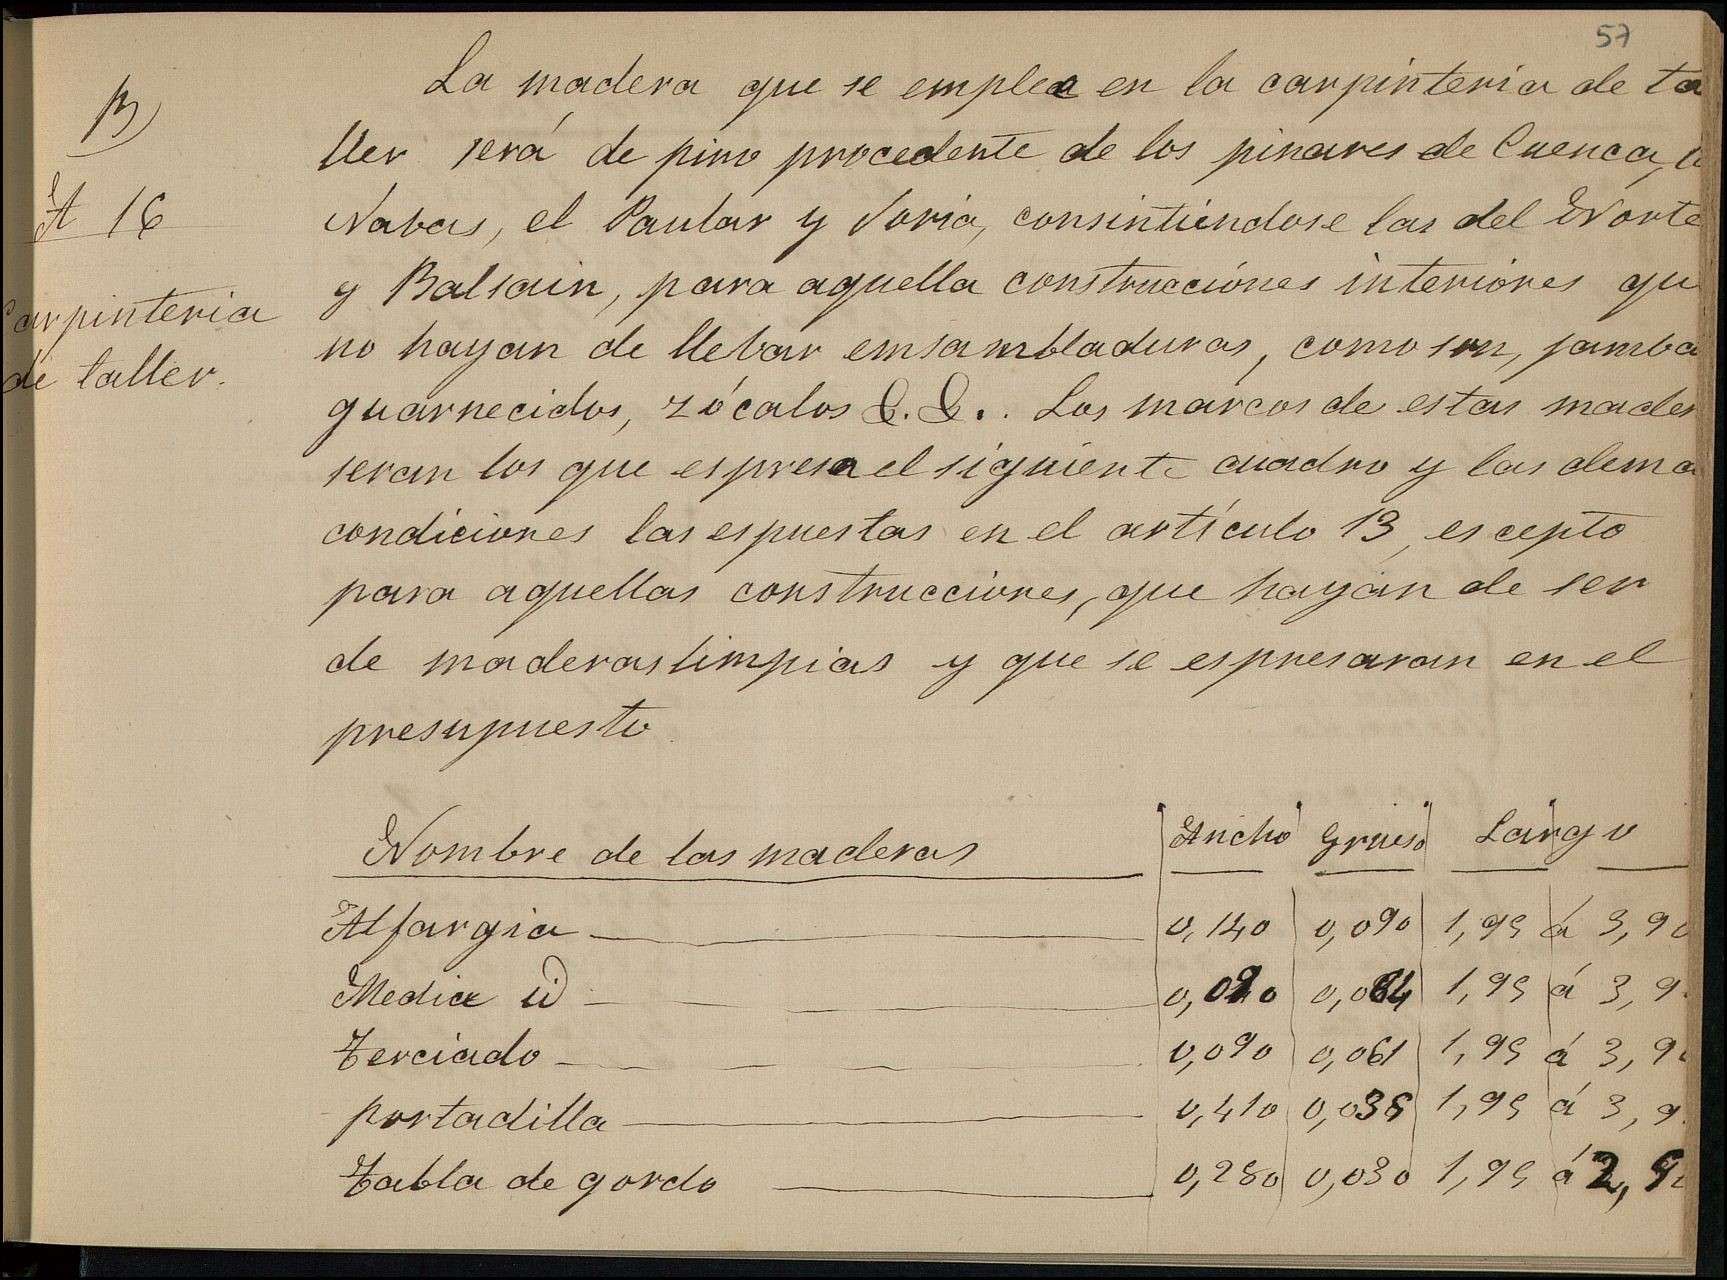 57
B)
A 16
Carpinteria
de taller.
La madera que se emplea en la carpinteria de ta
ller será de pino procedente de los pinares de Cuenca,
Navas, el Paular y Soria, consintiéndose las del Norte
y Balsain, para aquella construcciónes interióres qu
no hayan de llebar emsambladuras, como son, jamba
guarnecidos, zócalos &. &.. Los marcos de estas mader
seran los que espresa el siguiente cuadro y las dema
condiciones las espuestas en el artículo 13, escepto
para aquellas construcciones, que hayan de ser
de maderas limpias y que se espresaran en el
presupuesto
Nombre de las maderas Ancho Grueso Largo
Alfargia 0,140 0,090 1,95 á 3,90
Media id 0,090 0,084 1,95 á 3,9
Terciado 0,090 0,061 1,95 á 3,9
portadilla 0,410 0,038 1,95 á 3,9
Tabla de gordo 0,280 0,030 1,95 á 2,5